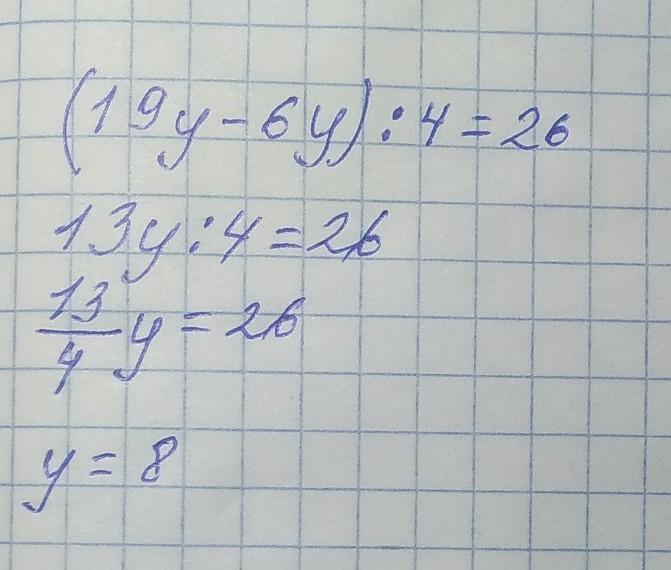 (19y-6y):4=26
13y:4=26
13/4 y=26
y=8